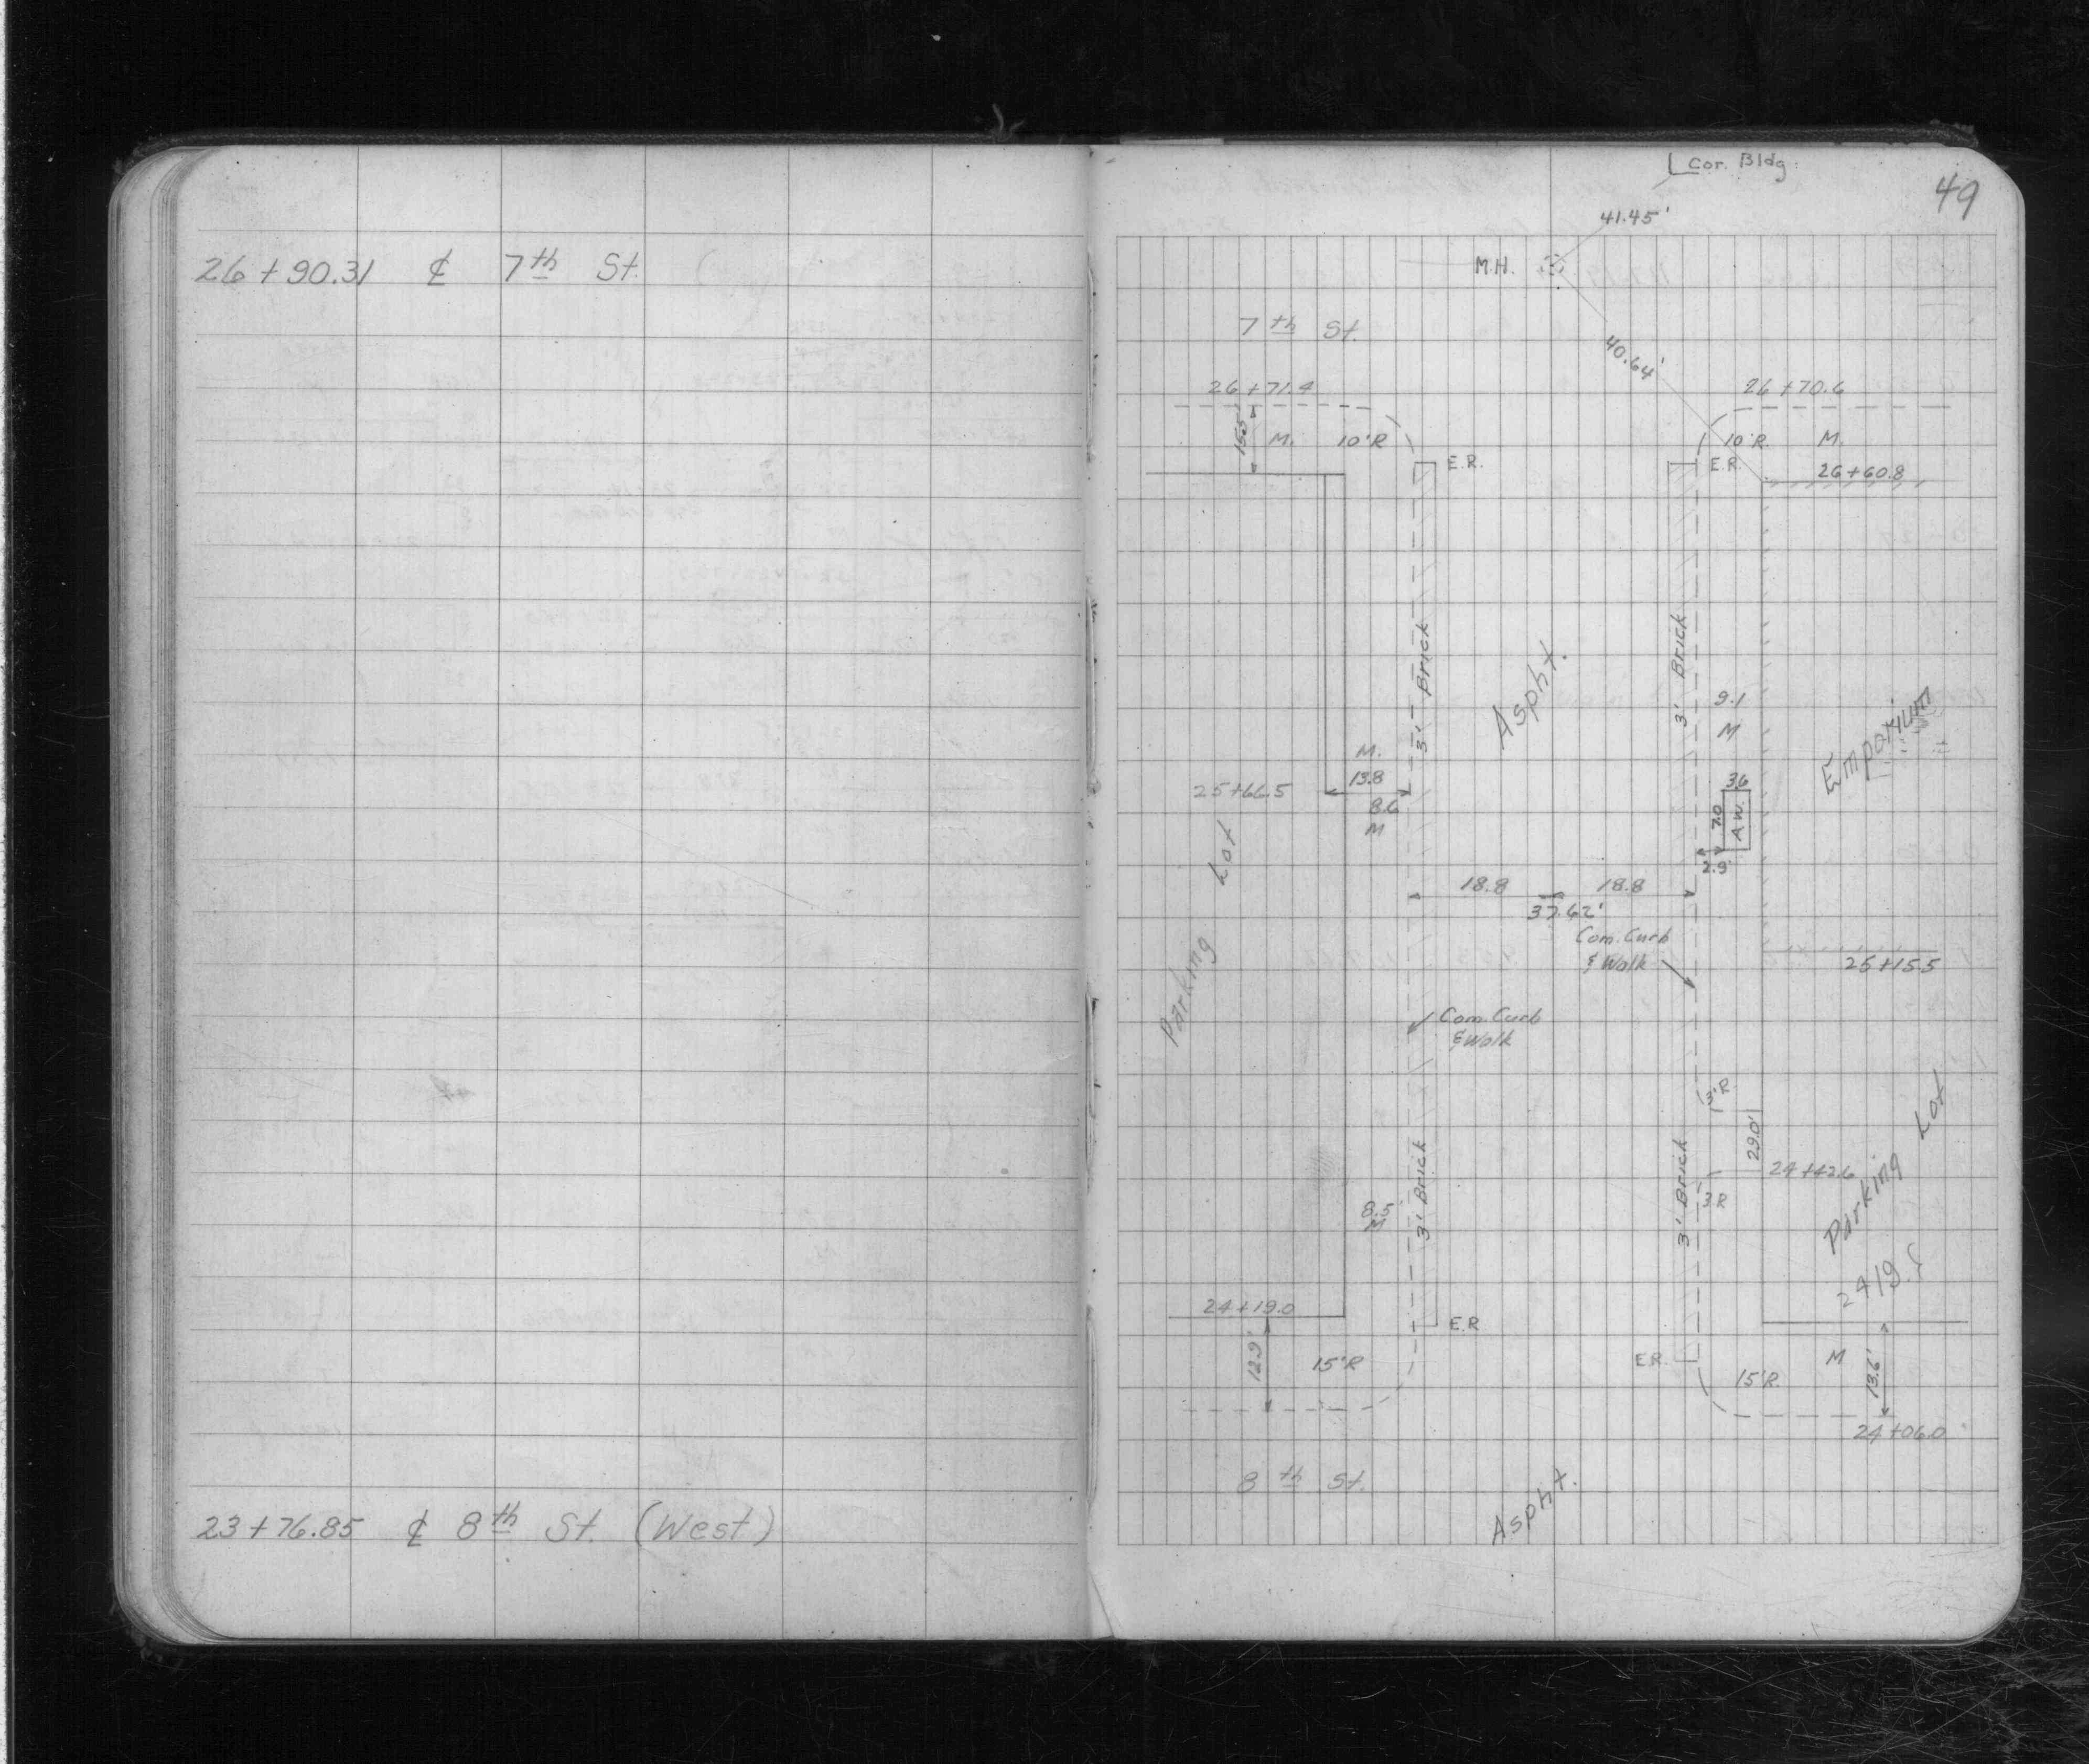 26+90.31 ℄ 7th St.
23+76.85 ℄ 8th St. (West)
Cor. Bldg.
49
41.45'
M.H.
7th St.
40.64'
26+71.4
26+70.6
15.5'
M. 10'R
10'R. M.
E.R.
E.R.
26+60.8
3' Brick
3' Brick
Aspht.
9.1
M
Emporium
M.
13.8
25+66.5
8.6
M
3.6
7.0
A.W.
2.9
Parking Lot
18.8 18.8
37.62'
Com. Curb
& Walk
25+15.5
Com. Curb
& Walk
3'R
29.0'
24+42.6
3'R
3' Brick
3' Brick
8.5
M
Parking Lot
24+19.0
E.R.
12.9'
15'R
E.R.
15'R.
M
13.6'
24+06.0
8th St.
Aspht.